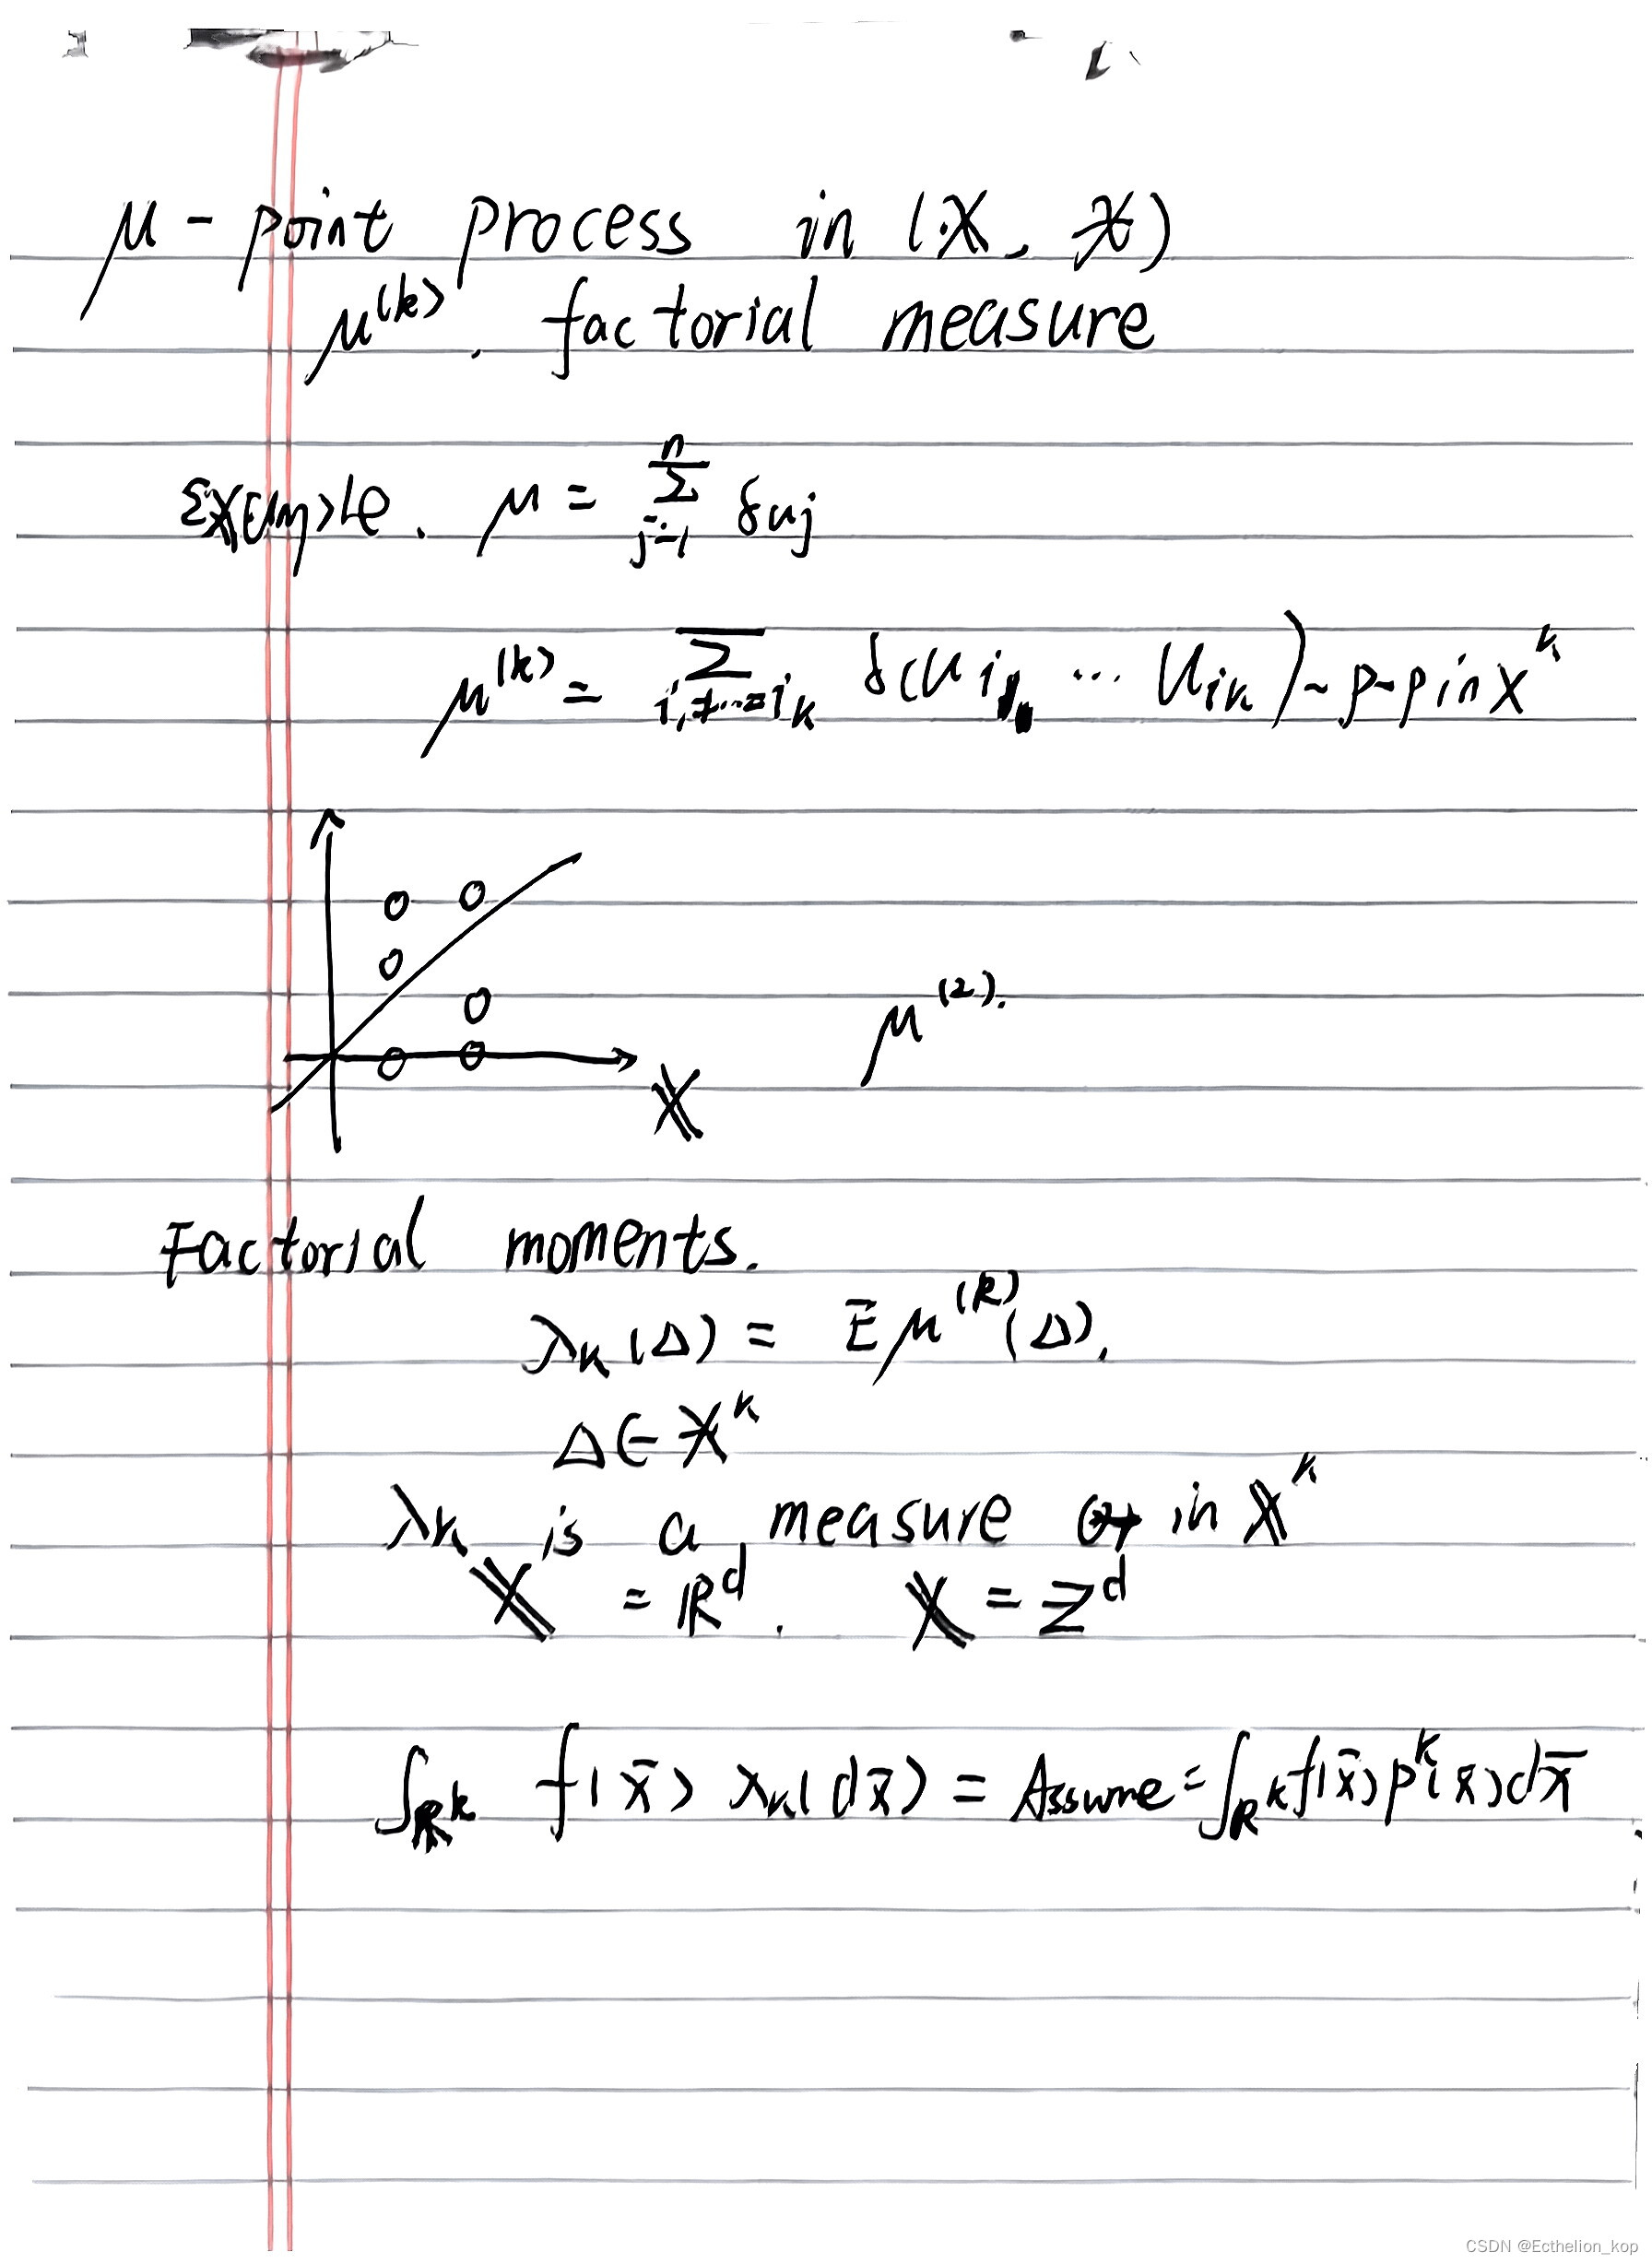 μ - point process in (𝕏, 𝒳)
μ^(k). factorial measure
Example. μ = Σ_{j=1}^{n} δ_{uj}
μ^(k) = Σ_{i₁≠...≠i_k} δ(u_{i₁} ... u_{ik}) - p-p in X^k
μ^(2).
𝕏
Factorial moments.
λ_k(Δ) = E μ^(k)(Δ),
Δ ∈ 𝒳^k
λ_k is a measure in 𝕏^k
𝕏 = ℝ^d. 𝕏 = ℤ^d
∫_{ℝ^k} f(x̄) λ_k(dx̄) = Assume = ∫_{ℝ^k} f(x̄) p^k(x̄) dx̄
CSDN @Ecthelion_kop